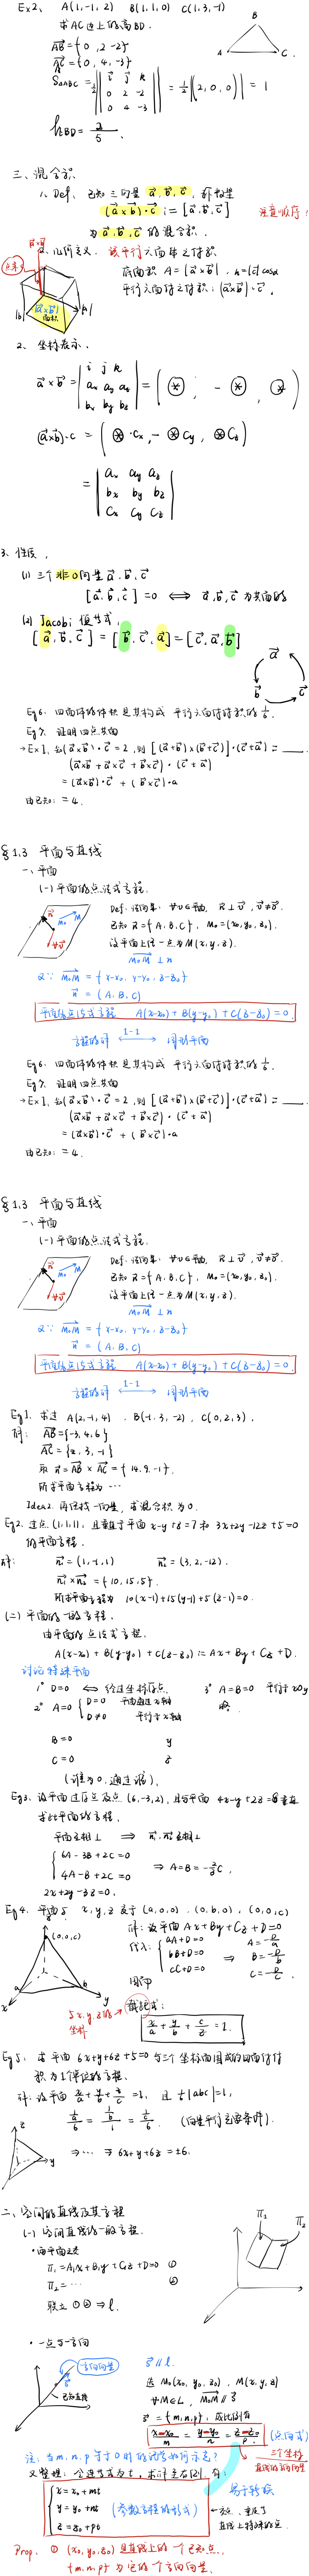 Ex2、 A(1,-1,2) B(1,1,0) C(1,3,-1)
求AC边上的高BD.
B
A
C
AB = {0, 2, -2}
AC = {0, 4, -3}
S△ABC = 1/2 || i j k ; 0 2 -2 ; 0 4 -3 || = 1/2 |(2,0,0)| = 1
hBD = 2/5.
三、混合积
1、Def. 已知三向量 a, b, c, 称数量
(a×b)·c := [a, b, c] 注意顺序!
为 a, b, c 的混合积.
几何意义. 该平行六面体之体积
底面积 A = |a×b|, h = |c| cosα
平行六面体之体积: (a×b)·c.
|a×b|
面积
2、坐标表示.
a×b = | i j k ; ax ay az ; bx by bz | = ( ⊛ , - ⊛ , ⊛ )
(a×b)·c = ( ⊛·cx, - ⊛ cy, ⊛ cz )
= | ax ay az ; bx by bz ; cx cy cz |
3、性质.
(1) 三个非0向量 a, b, c
[a, b, c] = 0 ⟺ a, b, c 为共面的
(2) Jacobi 恒等式.
[a, b, c] = [b, c, a] = [c, a, b]
a
b
c
Eg6. 四面体的体积是其构成平行六面体体积的 1/6.
Eg7. 证明四点共面
→Ex1. 若(a×b)·c = 2, 则 [(a+b)×(b+c)]·(c+a) = ____.
(a×b + a×c + b×c)·(c+a)
= (a×b)·c + (b×c)·a
由已知: = 4.
§1.3 平面与直线
一、平面
(一) 平面的点法式方程.
Def. 法向量: ∀v∈平面, n⊥v, v≠0.
已知 n = {A, B, C}, M0 = (x0, y0, z0).
设平面上任一点为 M(x, y, z).
M0M ⊥ n
∵ M0M = {x-x0, y-y0, z-z0}
n = (A, B, C)
平面的点法式方程 A(x-x0) + B(y-y0) + C(z-z0) = 0.
方程的解 ⟷ 1-1 图形平面
Eg6. 四面体的体积是其构成平行六面体体积的 1/6.
Eg7. 证明四点共面
→Ex1. 若(a×b)·c = 2, 则 [(a+b)×(b+c)]·(c+a) = ____.
(a×b + a×c + b×c)·(c+a)
= (a×b)·c + (b×c)·a
由已知: = 4.
§1.3 平面与直线
一、平面
(一) 平面的点法式方程.
Def. 法向量: ∀v∈平面, n⊥v, v≠0.
已知 n = {A, B, C}, M0 = (x0, y0, z0).
设平面上任一点为 M(x, y, z).
M0M ⊥ n
∵ M0M = {x-x0, y-y0, z-z0}
n = (A, B, C)
平面的点法式方程 A(x-x0) + B(y-y0) + C(z-z0) = 0.
方程的解 ⟷ 1-1 图形平面
Eg1. 求过 A(2,-1,4), B(-1,3,-2), C(0,2,3).
解: AB = {-3, 4, 6}
AC = {2, 3, -1}
取 n = AB × AC = {14, 9, -1}.
所求平面方程为 …
Idea2. 再任找一向量, 求混合积为0.
Eg2. 过点(1,1,1), 且垂直于平面 x-y+z=7 和 3x+2y-12z+5=0
的平面方程.
解: n1 = (1,-1,1) n2 = (3,2,-12).
n1×n2 = {10, 15, 5}.
所求平面方程为 10(x-1)+15(y-1)+5(z-1)=0.
(二) 平面的一般方程.
由平面的点法式方程.
A(x-x0) + B(y-y0) + C(z-z0) := Ax + By + Cz + D.
讨论特殊平面
1° D=0 ⟺ 经过坐标原点. 3° A=B=0 平行于xOy
2° A=0 { D=0 平面通过x轴 ; D≠0 平行于x轴 略.
B=0 y
C=0 z
(谁为0, 通过谁).
Eg3. 设平面过原点及点(6,-3,2), 且与平面 4x-y+2z=8垂直
求此平面的方程.
平面互相⊥ ⇒ n1, n2互相⊥
{ 6A-3B+2C=0 ; 4A-B+2C=0 ⇒ A=B=-2/3 C.
2x+2y-3z=0.
Eg4. 平面与 x, y, z 交于 (a,0,0), (0,b,0), (0,0,c)
解: 设平面 Ax+By+Cz+D=0
代入: { aA+D=0 ; bB+D=0 ; cC+D=0 ⇒ A=-D/a ; B=-D/b ; C=-D/c.
(0,0,c)
x
y
a
b
与x,y,z的
坐标
截距式:
x/a + y/b + z/c = 1.
Eg5. 求平面 6x+y+6z+5=0 与三个坐标面围成的四面体体
积为1个单位的方程.
解: 设平面 x/a + y/b + z/c = 1, 且 1/6|abc|=1,
(向量平行充要条件).
⇒ … ⇒ 6x+y+6z=±6.
z
y
x
二、空间的直线及其方程
(一) 空间直线的一般方程.
·两平面之交
π1 = A1x+B1y+C1z+D=0 ①
π2 = … ②
联立①② ⇒ l.
π1
π2
·一点与一方向
方向向量
已知直线
s ∥ l.
过 M0(x0, y0, z0), M(x, y, z)
∀M∈L, M0M ∥ s
s = {m, n, p}, 成比例有
(x-x0)/m = (y-y0)/n = (z-z0)/p. (点向式)
三个坐标
注: 当m,n,p等于0时的记号如何示意?
又整理: 令连等式为t, 求得左右, 有:
{ x = x0+mt ; y = y0+nt ; z = z0+pt (参数方程的形式)
易于转换
Prop. ① (x0, y0, z0) 是直线上的一个已知点.
{m,n,p} 为它的一个方向向量.